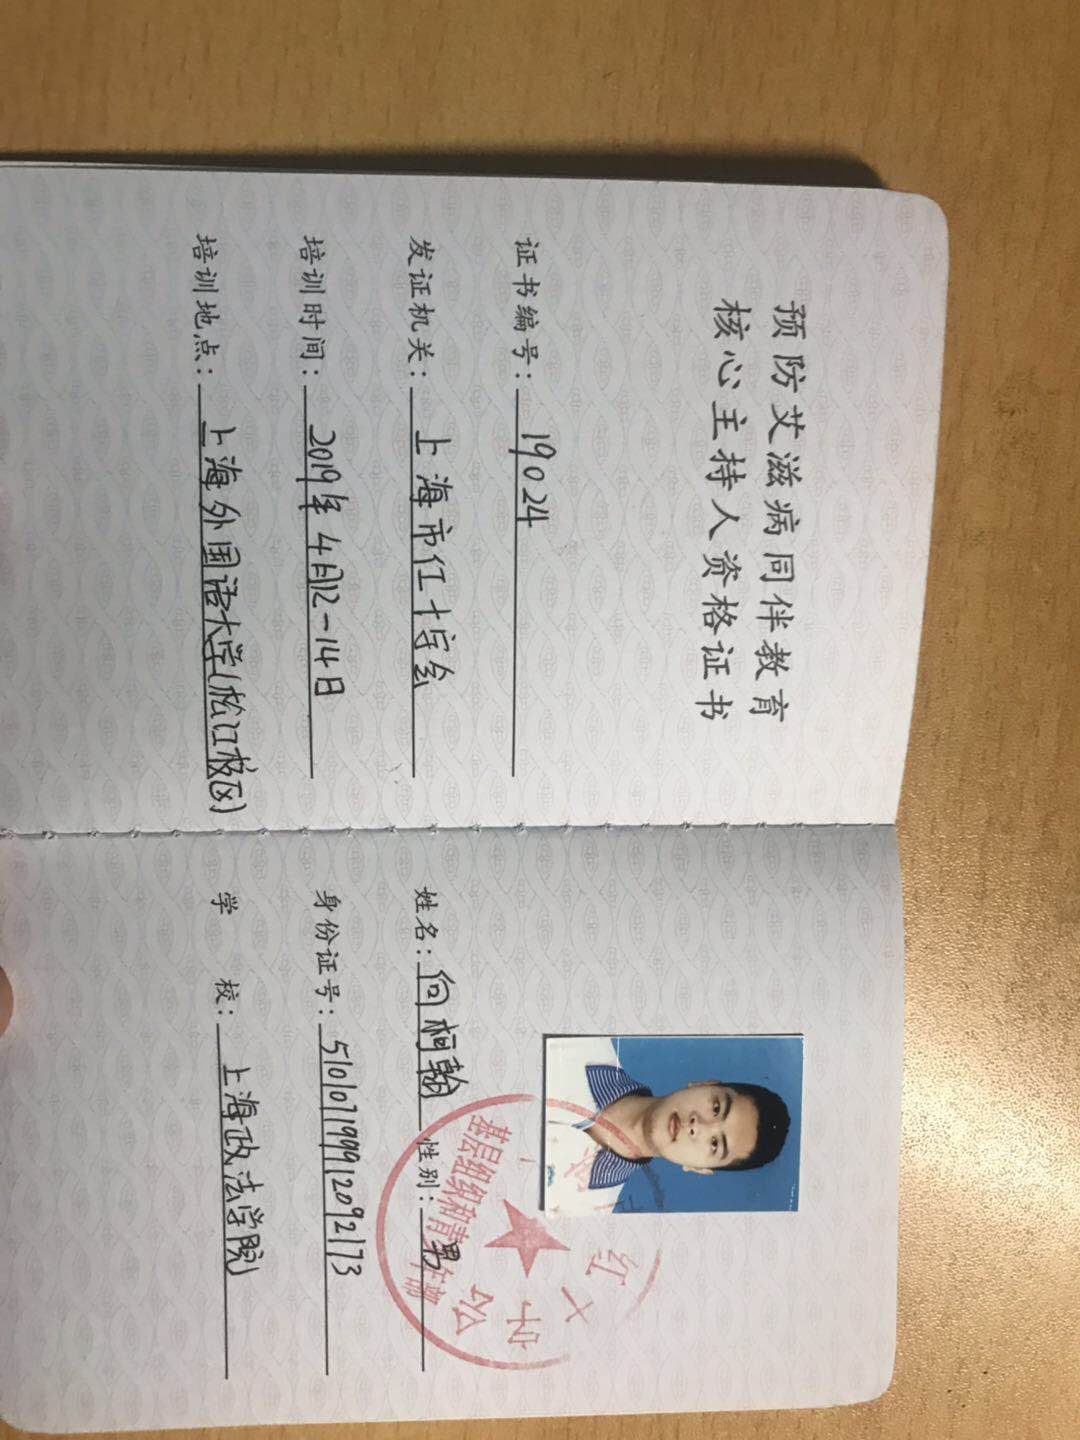 预防艾滋病同伴教育
核心主持人资格证书
证书编号：19024
发证机关：上海市红十字会
培训时间：2019年4月12-14日
培训地点：上海外国语大学(松江校区)
姓名：向柯翰 性别：男
身份证号：510107199912092173
学 校：上海政法学院
红十字会
基层组织和青少年部